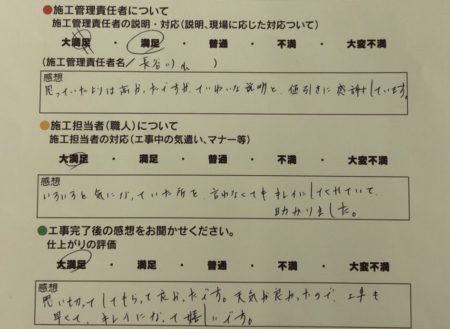 ●施工管理責任者について
施工管理責任者の説明・対応(説明、現場に応じた対応ついて)
大満足 ・ 満足 ・ 普通 ・ 不満 ・ 大変不満
(施工管理責任者名/長谷川 )
感想
思っていたよりは高かったですが、ていねいな説明と、値引きに感謝しています。
●施工担当者(職人)について
施工担当者の対応(工事中の気遣い、マナー等)
大満足 ・ 満足 ・ 普通 ・ 不満 ・ 大変不満
感想
いろいろと気になっていた所を、言わなくてもキレイにしてくれていて、
助かりました。
●工事完了後の感想をお聞かせください。
仕上がりの評価
大満足 ・ 満足 ・ 普通 ・ 不満 ・ 大変不満
感想
思い切ってしてもらって良かったです。天気が良かったので、工事も
早くて、キレイになって嬉しいです。